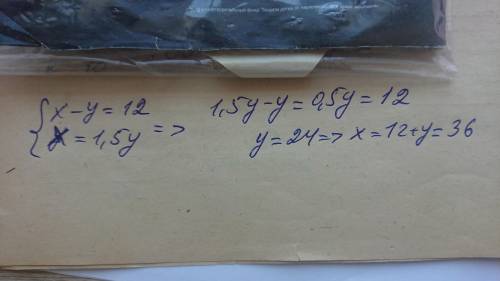 { x - y = 12
x = 1,5y =>
1,5y - y = 0,5y = 12
y = 24 => x = 12 + y = 36